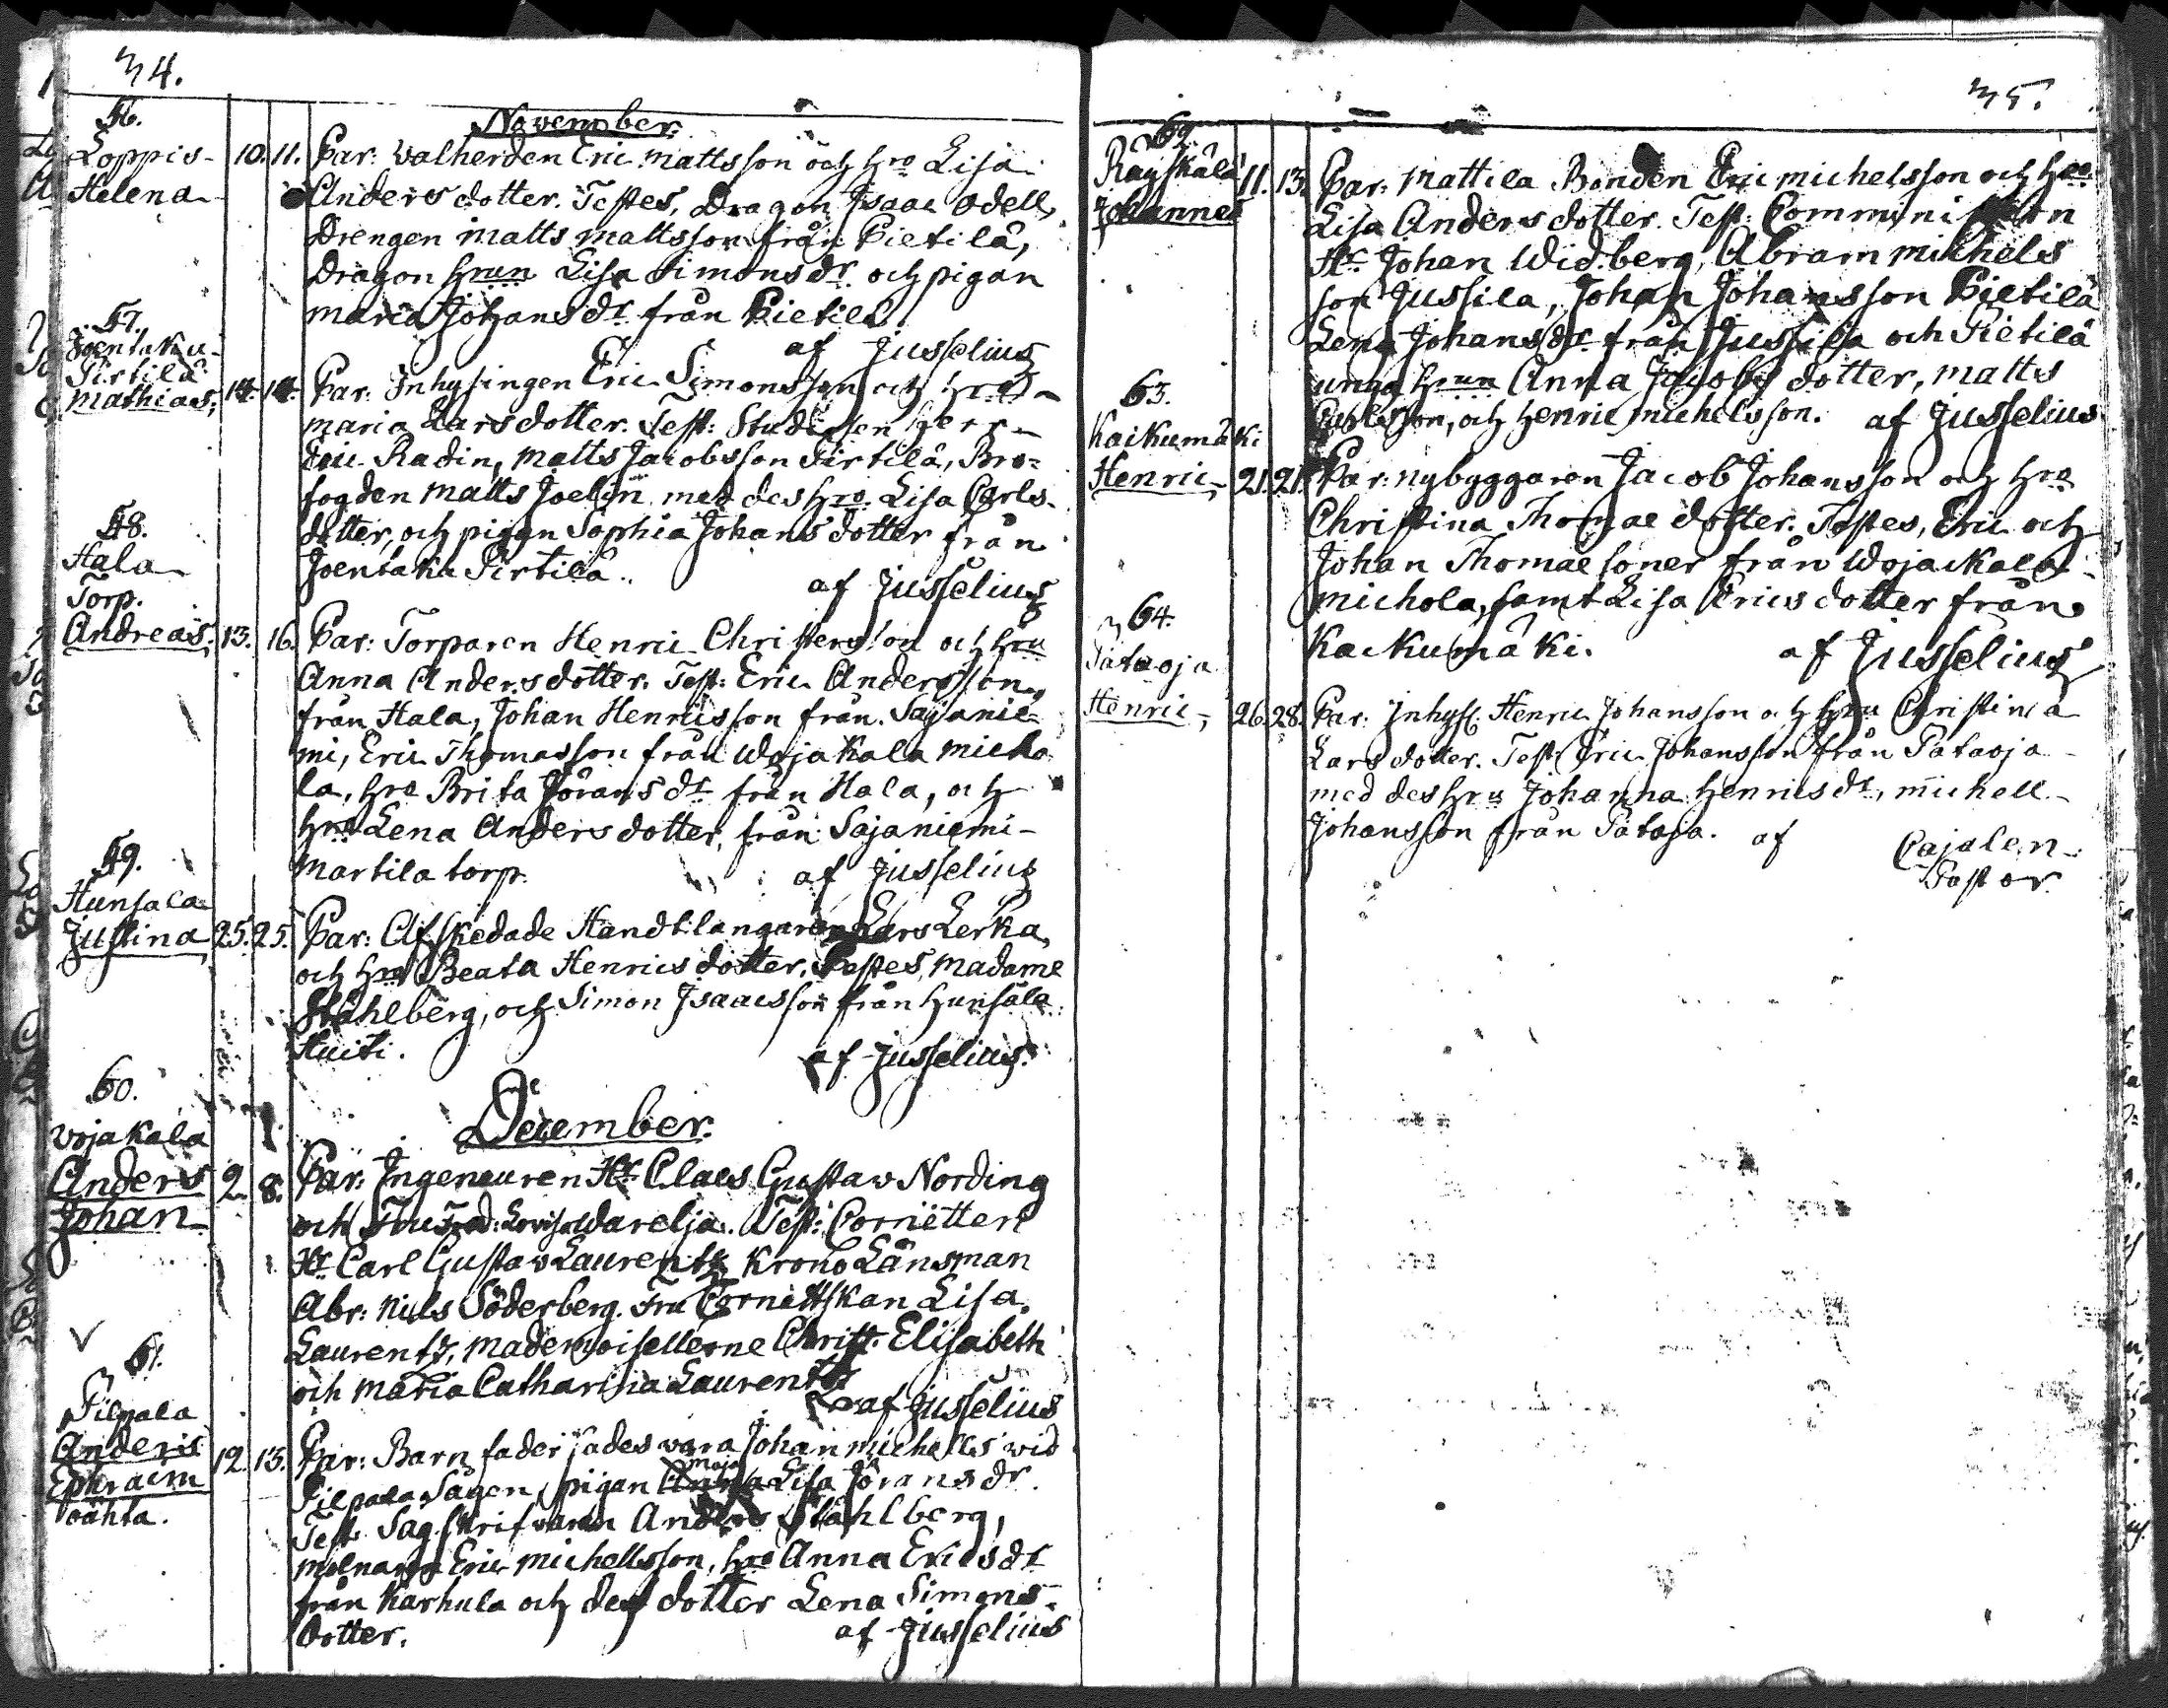 34.
56.
November.
Loppis- 10. 11. Par: Walherden Eric Mattsson och Hro Lisa
Helena Anders dotter. Testes, Dragon Isaac Odell,
Drengen Matts Mattsson från Pietilä,
Dragon Hrun Lisa Simonsdr. och pigan
Maria Johansdr från Pietilä.
af Jusselius
57.
Joentaka-
Pirtilä
Mathias, 14. 14. Par: Inhysingen Eric Simonsson och Hro
Maria Larsdotter. Test: Studenten Herr
Eric Radin, Matts Jacobsson Pirtilä, Bro-
fogden Matts Joelin med des Hro Lisa Carls-
dotter, och pigan Sophia Johans dotter från
Joentaka Pirtilä.
af Jusselius
58.
Hala
Torp.
Andreas. 13. 16. Par: Torparen Henric Christersson och Hru
Anna Andersdotter. Test: Eric Andersson,
från Hala, Johan Henricsson från Sajanie-
mi, Eric Thomasson från Wojakala Micho
la, Hro Brita Jöransdr från Hala, och
Hro Lena Anders dotter, från Sajaniemi-
Martila torp.
af Jusselius
59.
Hunsala
Justina 25. 25. Par: Afskedade Handtlangaren Lars Lerka,
och Hro Beata Henrics dotter. Testes, Madame
Ståhlberg, och Simon Isaacsson från Hunsala
Huiti.
af Jusselius.
December.
60.
Wojakala
Anders 2. 8. Par: Ingeneuren Hr Claes Gustaw Nording
Johan och Fru Fred: Lovisa Warelja. Test: Cornetten
Hr Carl Gustaw Laurentz Krono Länsman
Abr: Niels Söderberg. Fru Cornettskan Lisa
Laurentz, Mademoisellerne Christ: Elisabeth
och Maria Catharina Laurentz
af Jusselius
61.
Pilpala
Anders 12. 13. Par: Barnfader sades wara Johan Michells wid
Ephraim Pilpala Sågen, pigan Anna Maja Lisa Jöransdr.
oähta. Test: Sågskrifwaren Anders Ståhlberg,
mölnaren Eric Michellsson, Hro Anna Ericsdr
från Karhula och des dotter Lena Simons-
dotter.
af Jusselius
35.
62.
Räyskälä 11. 13. Par: Mattila Bonden Eric Michelsson och Hro
Johannes Lisa Anders dotter. Test: Comministern
Hr Johan Widberg, Abram Michels
son Jussila, Johan Johansson Pietilä
Lena Johansdr från Jussila och Pietilä
unga Hrun Anna Jacobs dotter, Matts
och Henric Michelsson. af Jusselius
63.
Kaikumäki
Henric, 21. 21. Par: nybyggaren Jacob Johansson och Hro
Christina Thomae dotter. Testes, Eric och
Johan Thomae söner från Wojackala
Michola, samt Lisa Erics dotter från
Kaikumäki.
af Jusselius
64.
Pataoja
Henric, 26. 28. Par: Inhys: Henric Johansson och Hru Christina
Lars dotter. Test Eric Johansson från Pataoja
med des Hru Johanna Henricsdr, Michell
Johansson från Pataja. af Cajalen
Pastor